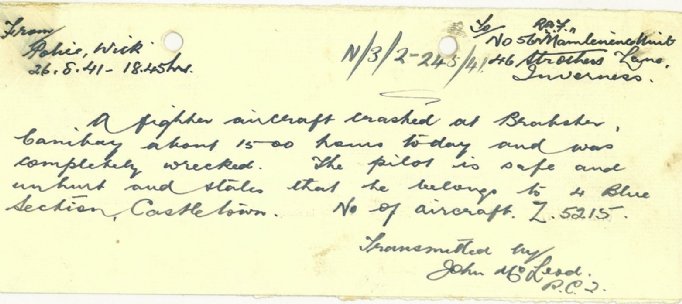 From
Police, Wick
26.8.41 - 18.45hrs.
N/3/2-245/41.
To R.A.F.
No 56 Maintenence Unit
46 Strothers Lane,
Inverness.
A fighter aircraft crashed at Brabster,
Canisbay about 1500 hours today and was
completely wrecked. The pilot is safe and
unhurt and states that he belongs to 4 Blue
Section, Castletown. No of aircraft. Z.5215.
Transmitted by
John McLeod.
P.C.